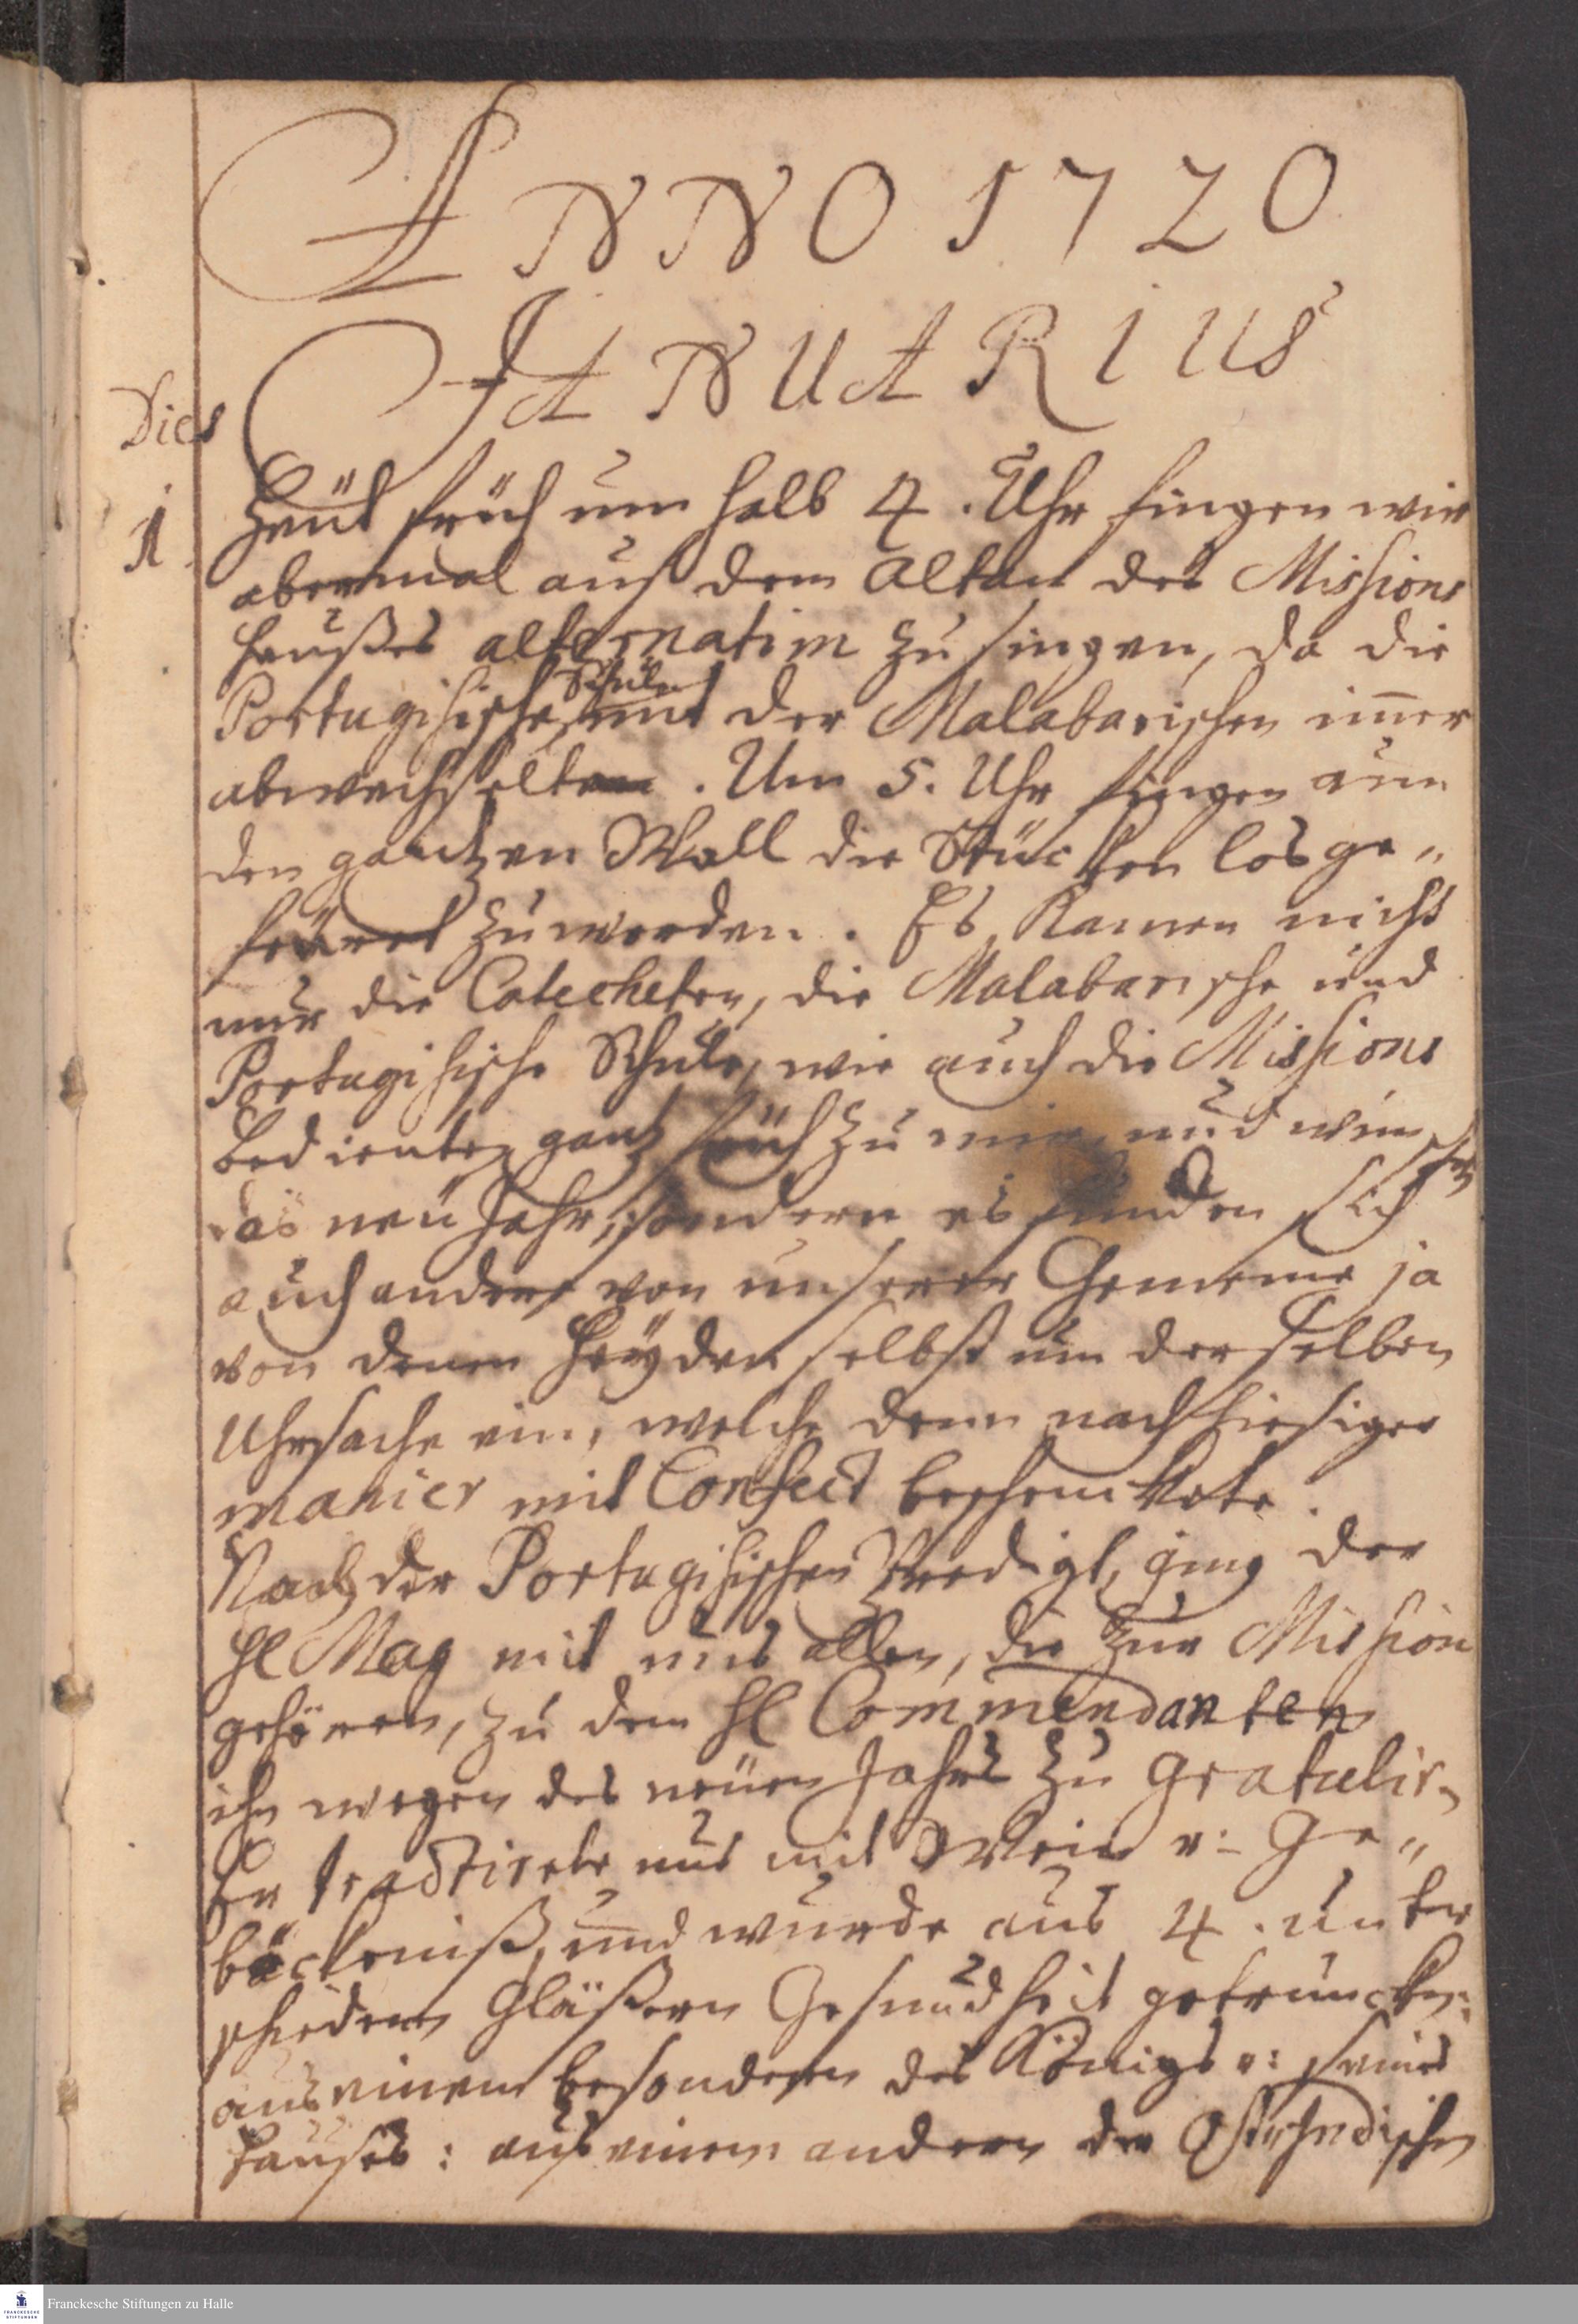 ANNO 1720
JANUARIUS
Dies
1. Heüt früh um halb 4. Uhr fingen wir
abermal auf dem Altan des Missions
Haußes alternatim zu singen, da die
Portugisische Schule mit der Malabarischen im̅er
abwechselten. Um 5. Uhr fingen um
den gantzen Wall die Stücken losge„
feüret zu werden. Es kamen nicht
nur die Catecheten, die Malabarische und
Portugisische Schule, wie auch die Missions
bedienten gantz früh zu mir, und wünschten
das neü Jahr, sondern es funden sich
auch andere von unserer Gemeine ja
von denen Heÿden selbst um derselben
Uhrsache ein, welche denn nach hiesiger
manier mit Confect beschenckte.
Nach der Portugisischen Predigt, ging der
Hl Mag mit uns allen, die zur Mission
gehören, zu dem Hl Commendanten
ihn wegen des neüen Jahrs zu gratulir,
Er tractirete uns mit Wein u: Ge„
bäckeniß, und wurde aus 4. unter
schiedenen Gläßern Gesundheit getruncken:
aus einem besondern des Königs u: seines
Hauses: aus einem andern der Ostindischen
Franckesche Stiftungen zu Halle